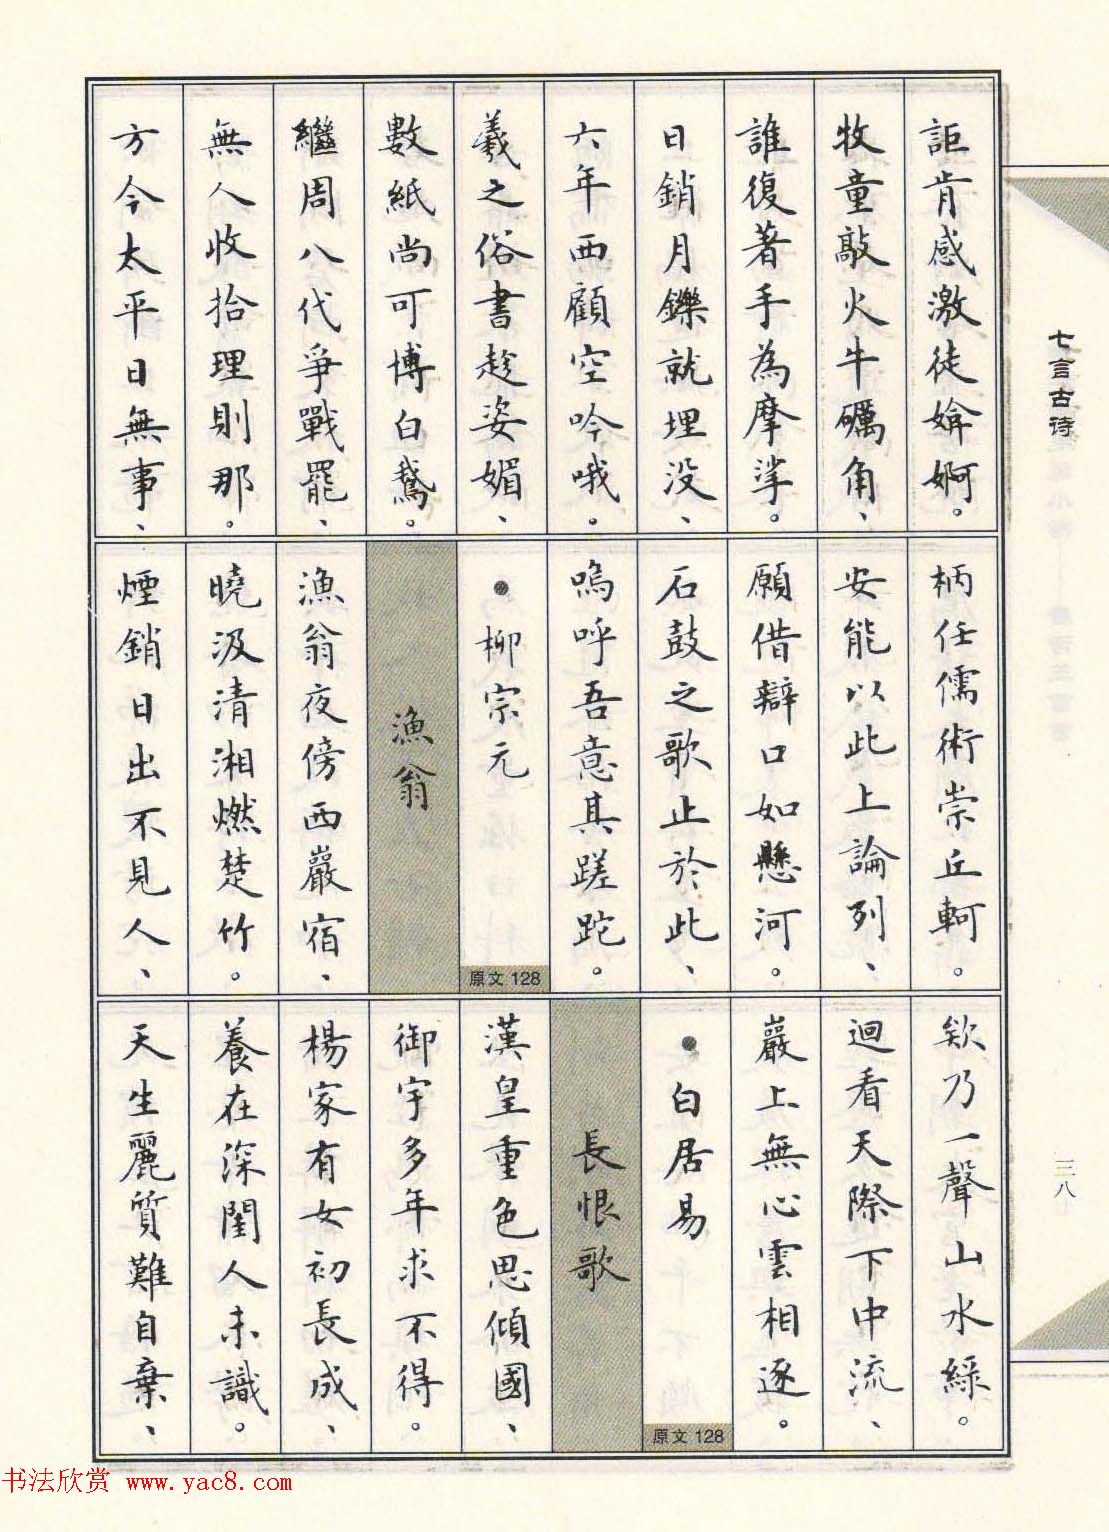 詎肯感激徒媕婀。
牧童敲火牛礪角、
誰復著手為摩挲。
日銷月鑠就埋没、
六年西顧空吟哦。
羲之俗書趁姿媚、
數紙尚可博白鵞。
繼周八代爭戰罷、
無人收拾理則那。
方今太平日無事、
柄任儒術崇丘軻。
安能以此上論列、
願借辯口如懸河。
石鼓之歌止於此、
嗚呼吾意其蹉跎。
●柳宗元
原文128
漁翁
漁翁夜傍西巖宿、
曉汲清湘燃楚竹。
煙銷日出不見人、
欸乃一聲山水綠。
迴看天際下中流、
巖上無心雲相逐。
●白居易
原文128
長恨歌
漢皇重色思傾國、
御宇多年求不得。
楊家有女初長成、
養在深閨人未識。
天生麗質難自棄、
七言古诗
三八
书法欣赏 www.yac8.com